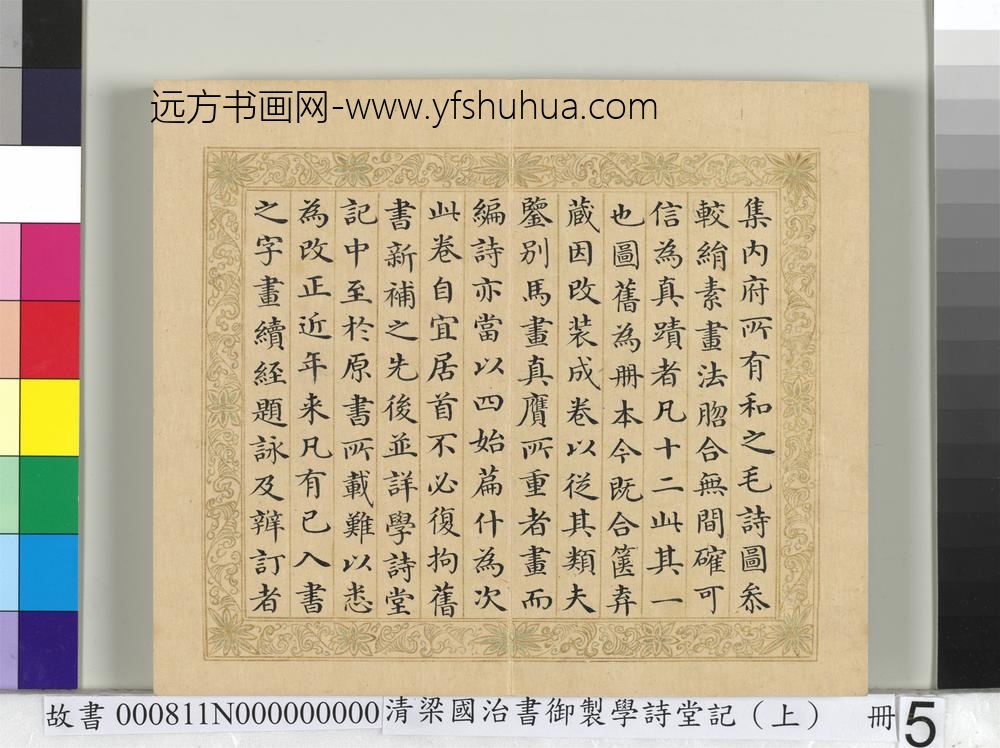 远方书画网-www.yfshuhua.com
集内府所有和之毛詩圖叅
較絹素畫法脗合無間確可
信為真蹟者凡十二此其一
也圖舊為冊本今既合篋弆
蔵因改装成卷以從其類夫
鑒別馬畫真贗所重者畫而
編詩亦當以四始篇什為次
此卷自宜居首不必復拘舊
書新補之先後並詳學詩堂
記中至於原書所載難以悉
為改正近年来凡有已入書
之字畫續經題詠及辨訂者
故書 000811N000000000 清梁國治書御製學詩堂記（上） 冊 5